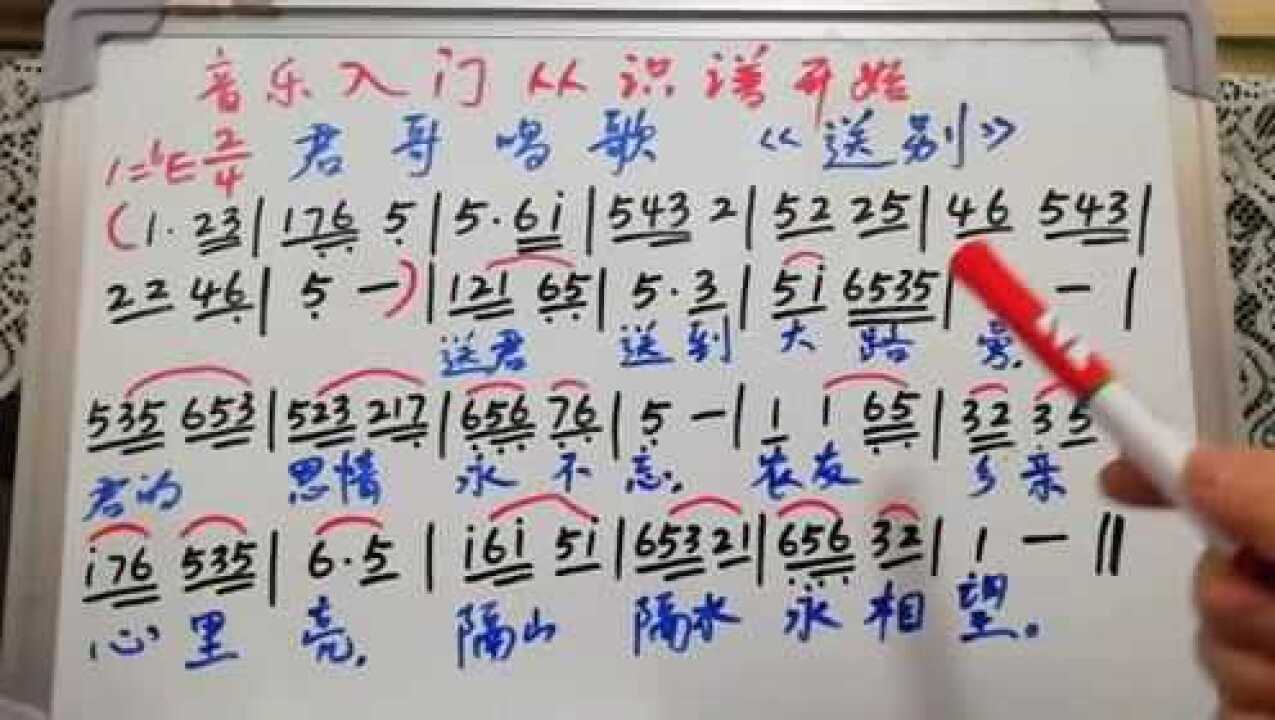 音乐入门从识谱开始
1=♭E 2/4 君哥唱歌 《送别》
(1. 23 | 176 5 | 5. 6i | 543 2 | 52 25 | 46 543 |
22 46 | 5 —) | 121 65 | 5. 3 | 5i 6535 | — |
送君 送到 大路 旁.
535 653 | 523 217 | 656 76 | 5 — | 1 1 65 | 32 35
君的 恩情 永不 忘. 农友 乡亲
i76 535 | 6. 5 | i6i 5i | 653 21 | 656 32 | 1 — ‖
心里 亮. 隔山 隔水 永相 望.